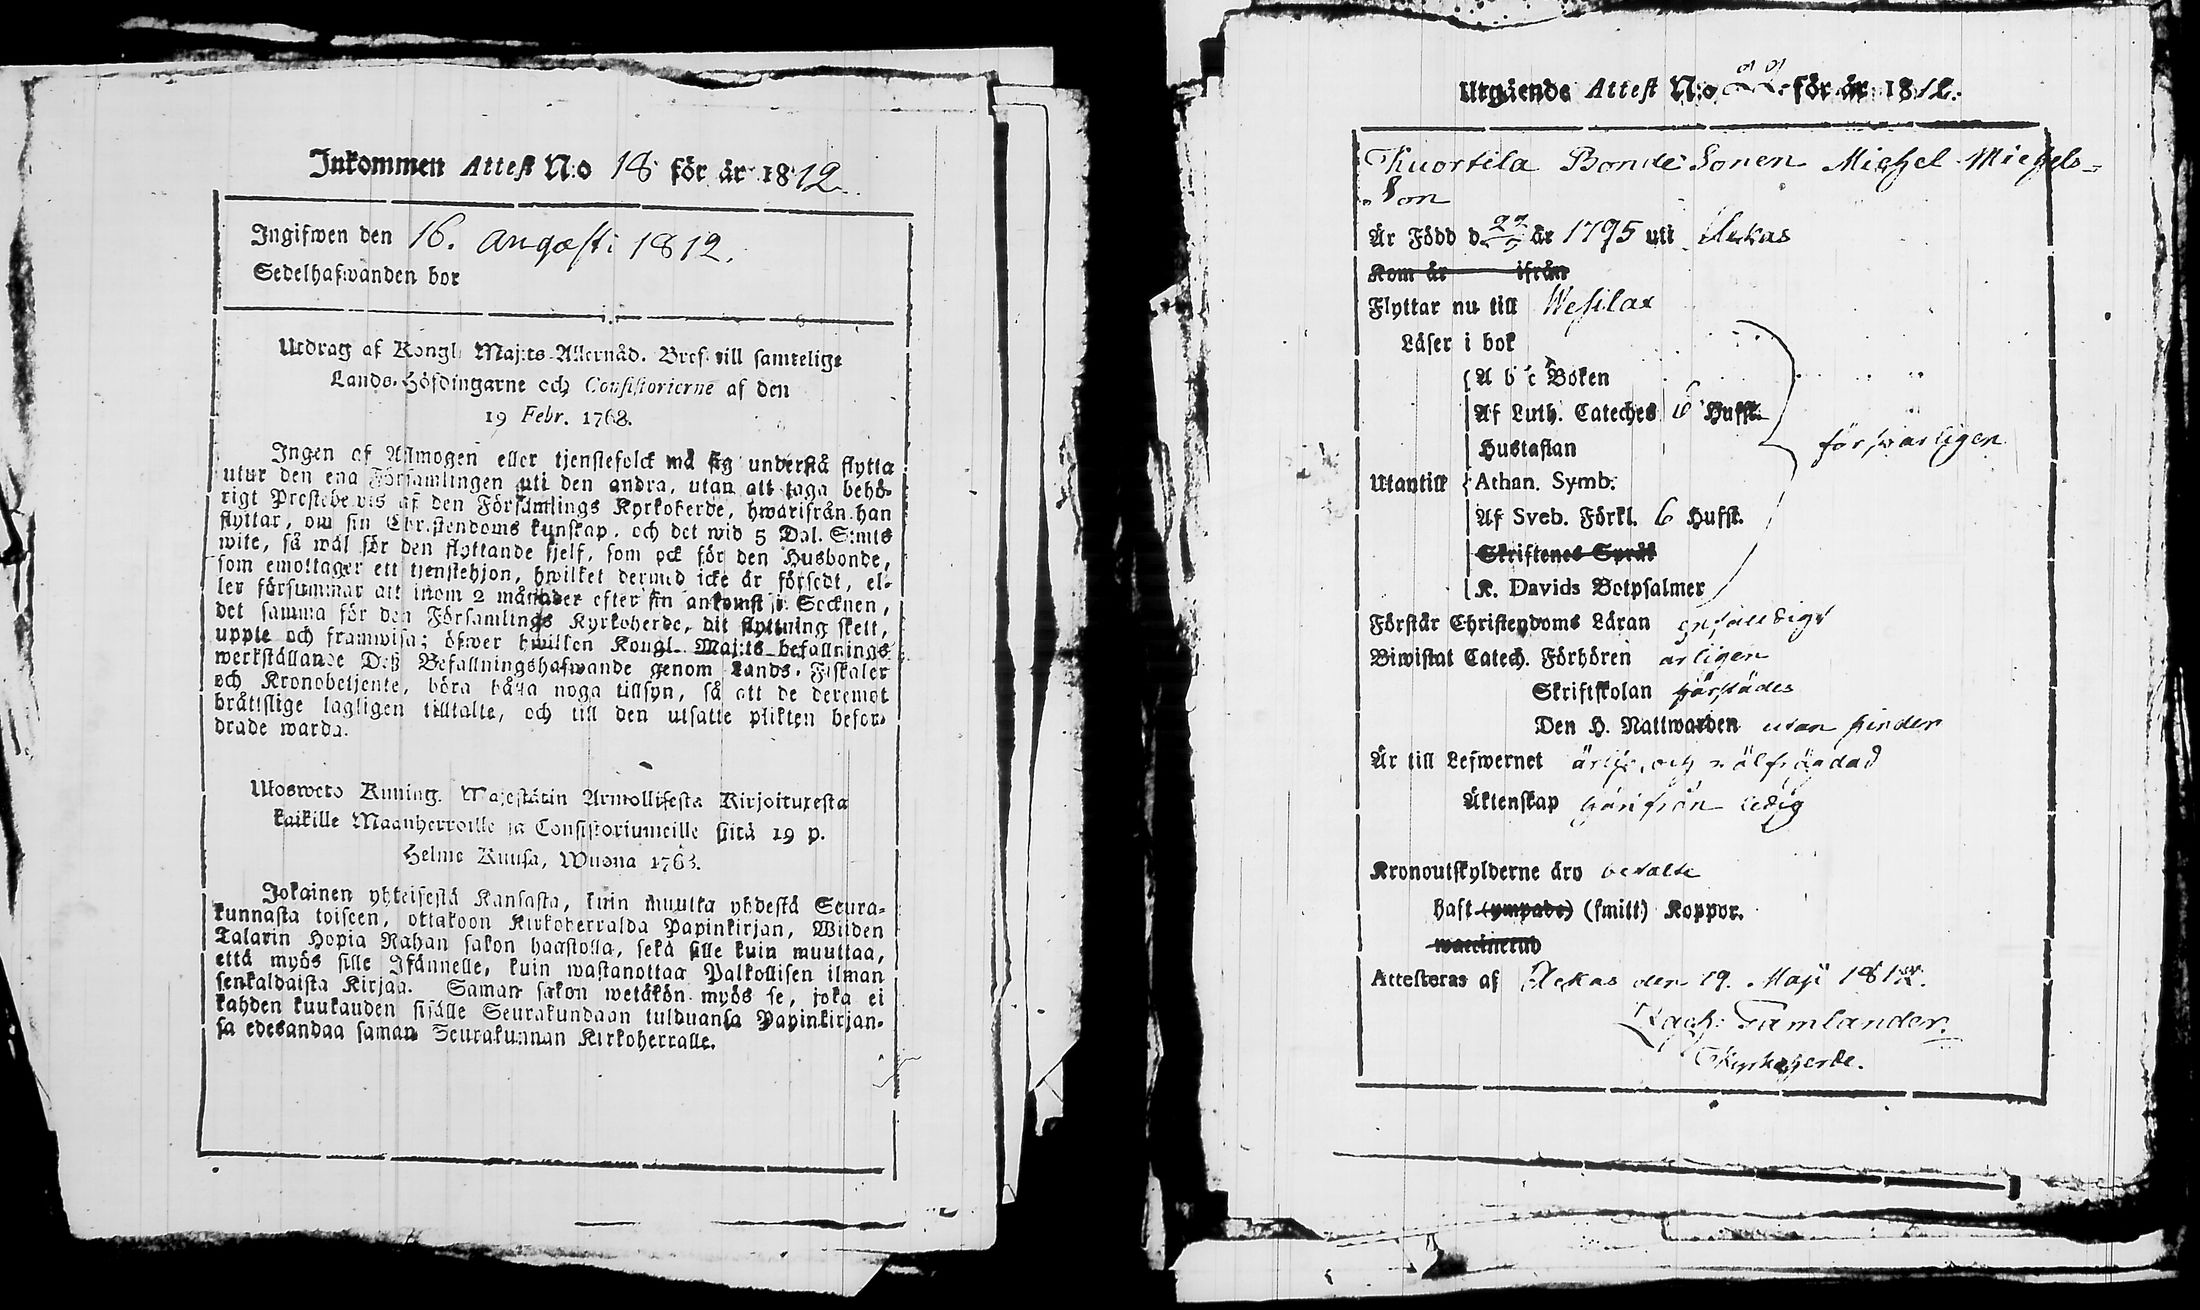 Inkommen Attest N:o 18 för år 1812.
Ingifwen den 16. augusti 1812.
Sedelhafwanden bor
Utdrag af Kongl. Maj:ts Allernåd. Bref till samtelige
Lands-Höfdingarne och Consistorierne af den
19 Febr. 1768.
Ingen af Allmogen eller tjenstefolck må sig understå flytta
utur den ena Församlingen uti den andra, utan att taga behö-
rigt Prestebewis af den Församlings Kyrkoherde, hwarifrån han
flyttar, om sin Christendoms kunskap, och det wid 5 Dal. S:mts
wite, så wäl för den flyttande sjelf, som ock för den Husbonde,
som emottager ett tjenstehjon, hwilket dermed icke är försedt, el-
ler försummar att inom 2 månader efter sin ankomst i Socknen,
det samma för den Församlings Kyrkoherde, dit flyttning skett,
uppte och framwisa; öfwer hwilken Kongl. Maj:ts befallnings
werkställande Deß Befallningshafwande genom Lands-Fiskaler
och Kronobetjente, böra hålla noga tillsyn, så att de deremot
bråttslige lagligen tilltalte, och till den utsatte plikten befor-
drade warda.
Ulosweto Kuning. Majestätin Armollisesta Kirjoituxesta
kaikille Maanherroille ja Consistoriumeille siitä 19 p.
Helme Kuusa, Wuona 1768.
Jokainen yhteisestä Kansasta, kuin muutta yhdestä Seura-
kunnasta toiseen, ottakoon Kirkoherralda Papinkirjan, Wiiden
Talarin Hopia Rahan sakon haastolla, sekä sille kuin muuttaa,
että myös sille Isännelle, kuin wastanottaa Palkollisen ilman
senkaldaista Kirjaa. Saman sakon wetäkön myös se, joka ei
kahden kuukauden sisälle Seurakundaan tulduansa Papinkirjan-
sa edesandaa saman Seurakunnan Kirkoherralle.
Utgående Attest N:o 22 för år 1812.
Kuortila Bonde Sonen Michel Michels-
son
Är Född d. 22/9 är 1795 uti Ackas
Kom år ifrån
Flyttar nu till Wesilax
Läser i bok
A b c Boken
Af Luth. Cateches 6 Hufst.
Hustaflan
försvarligen
Utantill Athan. Symb.
Af Sveb. Förkl. 6 Hufst.
Skriftenes Språk
K. Davids Botpsalmer
Förstår Christendoms Läran enfaldigt
Biwistat Catech. Förhören årligen
Skriftskolan härstädes
Den H. Nattwarden utan hinder
Är till Lefwernet ärlig och välfrägdad
Äktenskap härifrån ledig
Kronoutskylderne äro betalte
haft (ympade) (smitt) Koppor.
waccinerad
Attesteras af Ackas den 19. Maji 1812.
Zach: Tamlander.
Kyrkoherde.